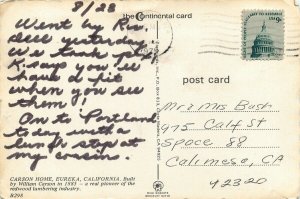 8/28
the Continental card
Went by Riv.
dell yesterday
We took pix!
K says you'll
have a fit
when you see
them!
On to Portland
today with a
lunch stop at
my
post card
Mr & Mrs Bush
975 Calif St
Space 88
Calimesa, CA
92320
CARSON HOME, EUREKA, CALIFORNIA. Built
by William Carson in 1885 — a real pioneer of the
redwood lumbering industry.
B298